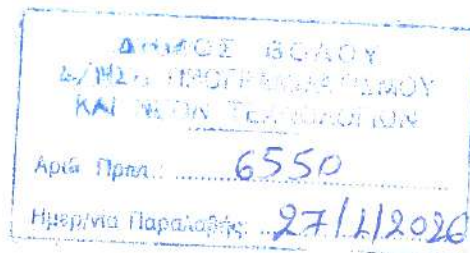 ΔΗΜΟΣ ΒΟΛΟΥ
Δ/ΝΣΗ ΠΡΟΓΡΑΜΜΑΤΙΣΜΟΥ
ΚΑΙ ΝΕΩΝ ΤΕΧΝΟΛΟΓΙΩΝ
Αριθ. Πρωτ.: 6550
Ημερ/νία Παραλαβής: 27/1/2026